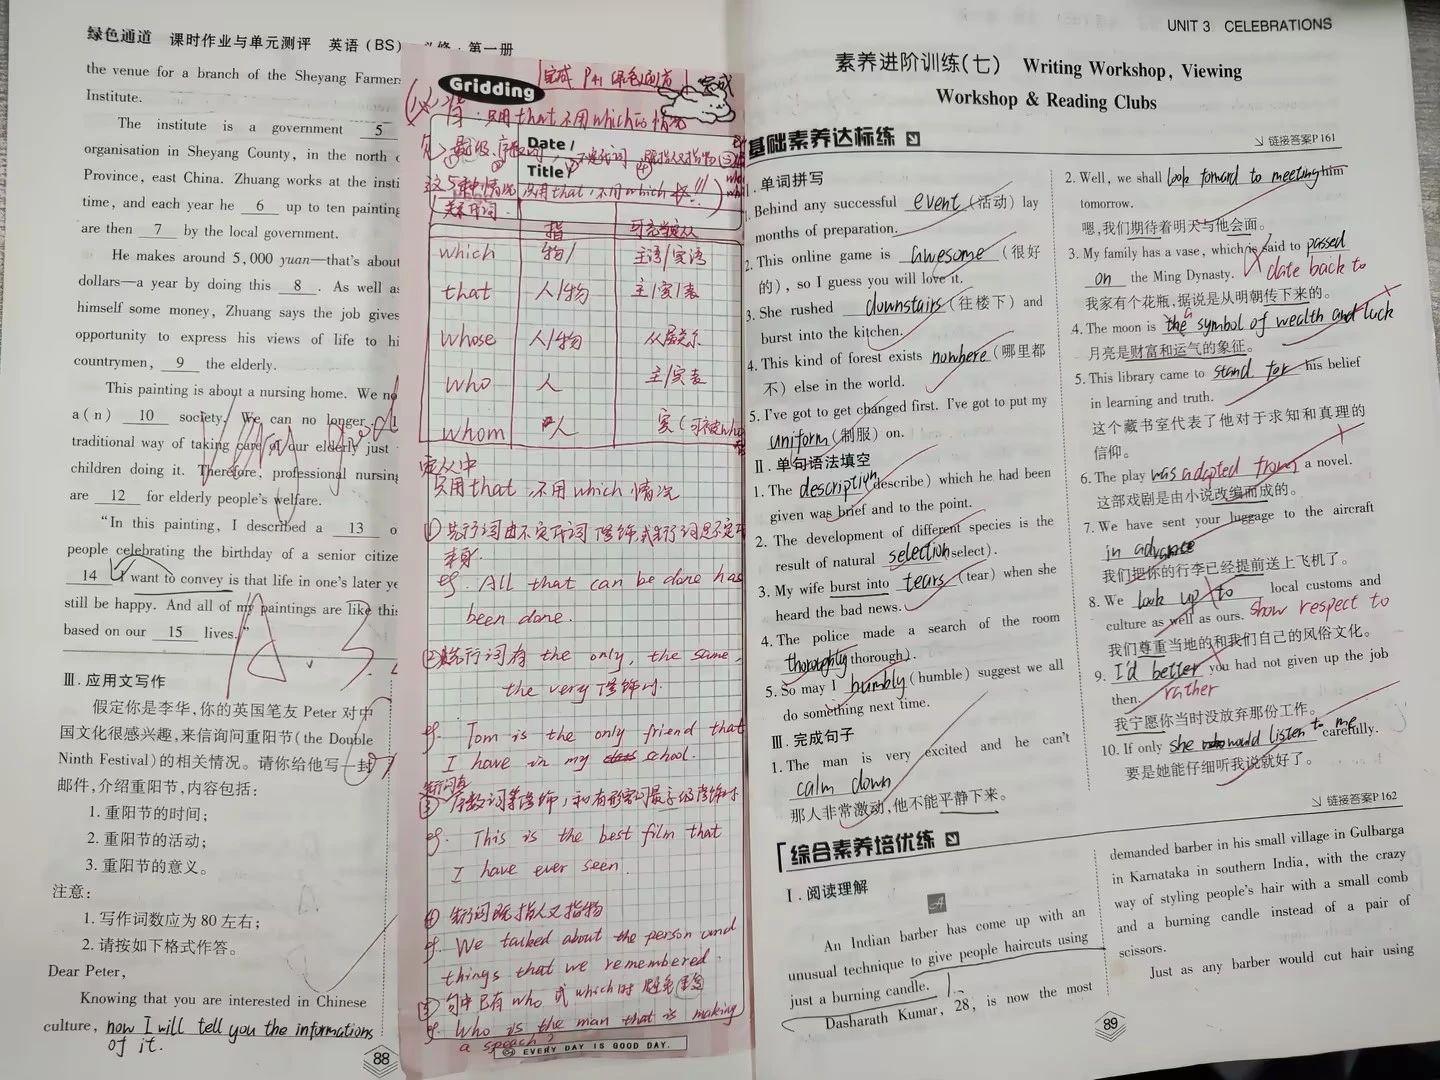 绿色通道 课时作业与单元测评 英语(BS) 必修·第一册
the venue for a branch of the Sheyang Farmers
Institute.
The institute is a government 5
organisation in Sheyang County, in the north
Province, east China. Zhuang works at the insti
time, and each year he 6 up to ten painting
are then 7 by the local government.
He makes around 5,000 yuan—that's about
dollars—a year by doing this 8 . As well as
himself some money, Zhuang says the job gives
opportunity to express his views of life to hi
countrymen, 9 the elderly.
This painting is about a nursing home. We no
a(n) 10 society. We can no longer
traditional way of taking care of our elderly just
children doing it. Therefore, professional nursing
are 12 for elderly people's welfare.
"In this painting, I described a 13
people celebrating the birthday of a senior citize
14 I want to convey is that life in one's later ye
still be happy. And all of my paintings are like this
based on our 15 lives."
Ⅲ. 应用文写作
假定你是李华,你的英国笔友 Peter 对中
国文化很感兴趣,来信询问重阳节(the Double
Ninth Festival)的相关情况。请你给他写一封
邮件,介绍重阳节,内容包括:
1. 重阳节的时间;
2. 重阳节的活动;
3. 重阳节的意义。
注意:
1. 写作词数应为 80 左右;
2. 请按如下格式作答。
Dear Peter,
Knowing that you are interested in Chinese
culture, now I will tell you the informations
of it.
88
Gridding
完成 P41 绿色通道
完成
Date /
Title /
只用that不用which的情况
这5种情况 只用that,不用which
关系词
指
which 物/ 主语/宾语
that 人/物 主/宾/表
whose 人/物 从属关系
who 人 主/宾/表
whom 人
定从中
只用that,不用which情况
① 先行词由不定代词修饰,或先行词是不定代
本身
eg. All that can be done has
been done.
② 先行词有 the only, the same,
the very 修饰时.
eg. Tom is the only friend that
I have in my school.
③
eg. This is the best film that
I have ever seen.
④ 先行词既指人又指物
eg. We talked about the person and
things that we remembered.
⑤ 句中已有who 或which时 避免重复
eg. Who is the man that is making
a speach?
EVERY DAY IS GOOD DAY.
UNIT 3 CELEBRATIONS
素养进阶训练(七) Writing Workshop, Viewing
Workshop & Reading Clubs
基础素养达标练
链接答案P161
Ⅰ. 单词拼写
1. Behind any successful event (活动) lay
months of preparation.
2. This online game is Awesome (很好
的), so I guess you will love it.
3. She rushed downstairs (往楼下) and
burst into the kitchen.
4. This kind of forest exists nowhere (哪里都
不) else in the world.
5. I've got to get changed first. I've got to put my
uniform (制服) on.
Ⅱ. 单句语法填空
1. The description (describe) which he had been
given was brief and to the point.
2. The development of different species is the
result of natural selection (select).
3. My wife burst into tears (tear) when she
heard the bad news.
4. The police made a search of the room
thoroughly (thorough).
5. So may I humbly (humble) suggest we all
do something next time.
Ⅲ. 完成句子
1. The man is very excited and he can't
calm down
那人非常激动,他不能平静下来。
2. Well, we shall look forward to meeting him
tomorrow.
嗯,我们期待着明天与他会面。
3. My family has a vase, which is said to passed
on the Ming Dynasty. date back to
我家有个花瓶,据说是从明朝传下来的。
4. The moon is the a symbol of wealth and luck
月亮是财富和运气的象征。
5. This library came to stand for his belief
in learning and truth.
这个藏书室代表了他对于求知和真理的
信仰。
6. The play was adapted from a novel.
这部戏剧是由小说改编而成的。
7. We have sent your luggage to the aircraft
in advance
我们把你的行李已经提前送上飞机了。
8. We look up to local customs and
culture as well as ours. show respect to
我们尊重当地的和我们自己的风俗文化。
9. I'd better you had not given up the job
then. rather
我宁愿你当时没放弃那份工作。
10. If only she would listen to me carefully.
要是她能仔细听我说就好了。
链接答案P162
综合素养培优练
Ⅰ. 阅读理解
A
An Indian barber has come up with an
unusual technique to give people haircuts using
just a burning candle. 1.
Dasharath Kumar, 28, is now the most
demanded barber in his small village in Gulbarga
in Karnataka in southern India, with the crazy
way of styling people's hair with a small comb
and a burning candle instead of a pair of
scissors.
Just as any barber would cut hair using
89